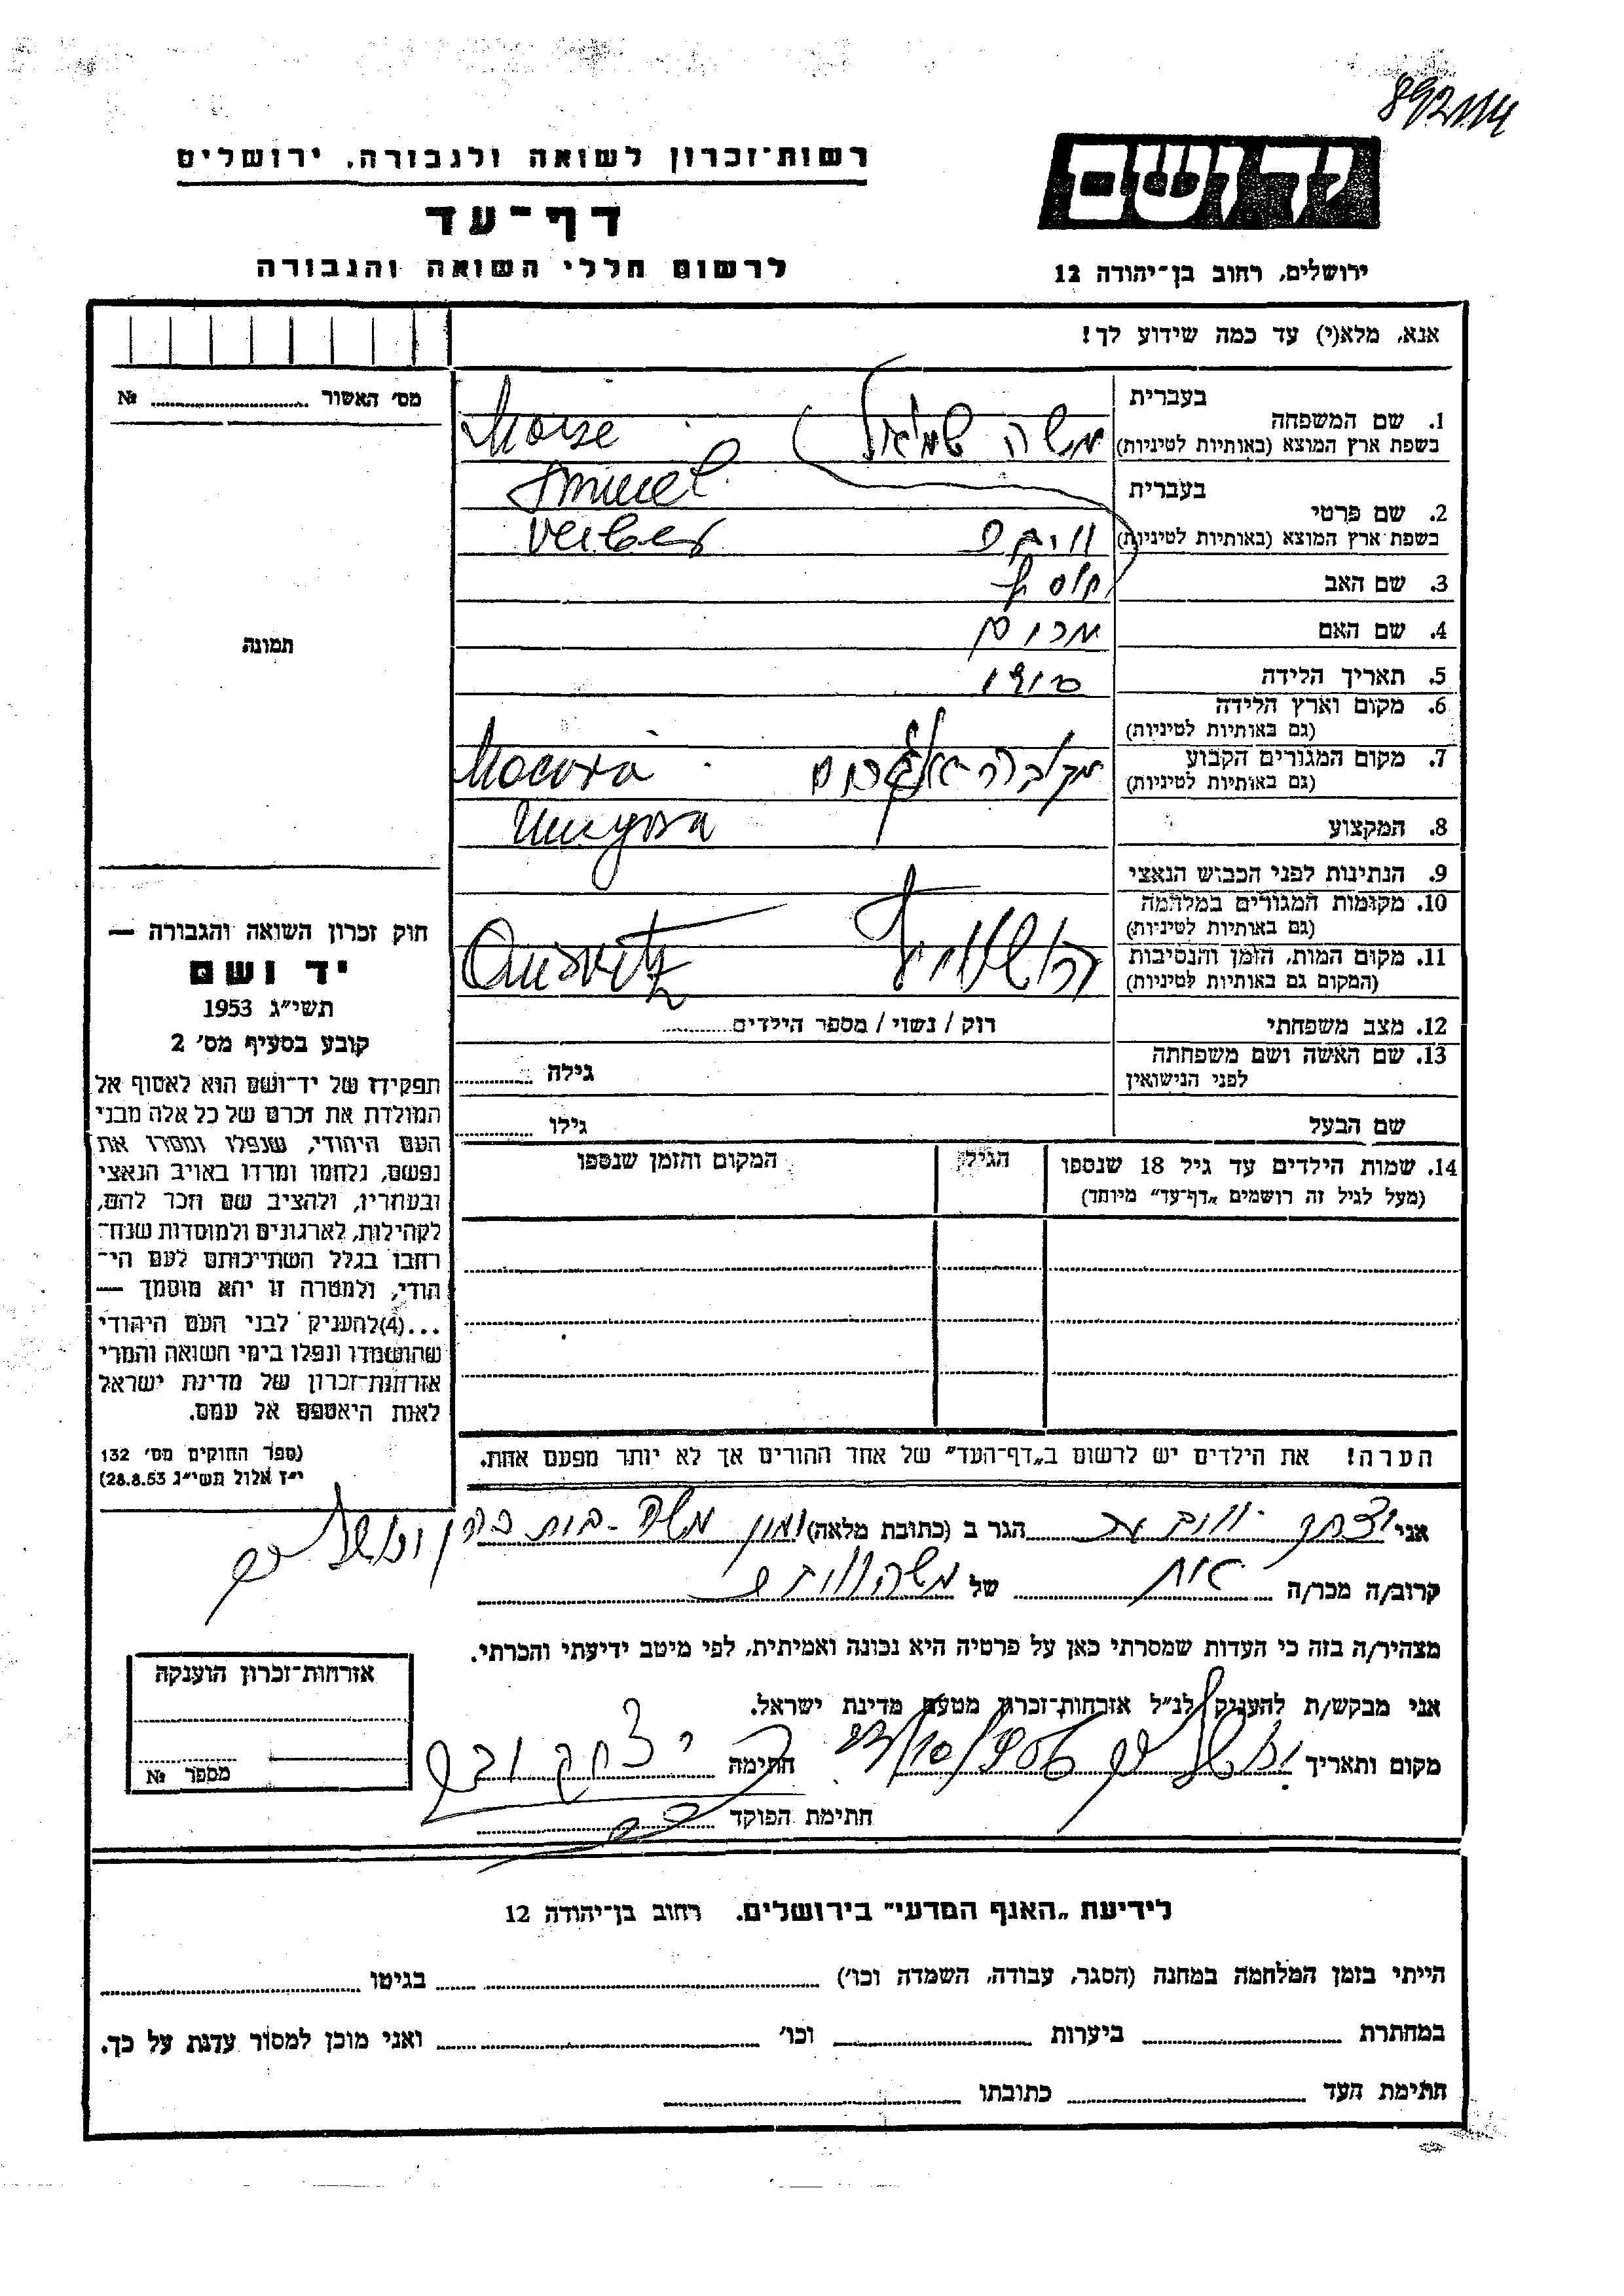 רשות־זכרון לשואה ולגבורה. ירושלים
דף־עד
לרשום חללי השואה והגבורה
יד ושם
ירושלים, רחוב בן־יהודה 12
אנא, מלא(י) עד כמה שידוע לך!
מס׳ האשור № ........
תמונה
בעברית
1. שם המשפחה
בשפת ארץ המוצא (באותיות לטיניות)
משה שמואל
בעברית
2. שם פרטי
בשפת ארץ המוצא (באותיות לטיניות)
3. שם האב
יוסף
4. שם האם
מרים
5. תאריך הלידה
6. מקום וארץ הלידה
(גם באותיות לטיניות)
7. מקום המגורים הקבוע
(גם באותיות לטיניות)
8. המקצוע
9. הנתינות לפני הכבוש הנאצי
10. מקומות המגורים במלחמה
(גם באותיות לטיניות)
11. מקום המות, הזמן והנסיבות
(המקום גם באותיות לטיניות)
12. מצב משפחתי
רוק / נשוי / מספר הילדים........
13. שם האשה ושם משפחתה
לפני הנישואין
גילה ........
שם הבעל
גילו ........
14. שמות הילדים עד גיל 18 שנספו
(מעל לגיל זה רושמים „דף־עד" מיוחד)
הגיל
המקום והזמן שנספו
הערה! את הילדים יש לרשום ב„דף־העד" של אחד ההורים אך לא יותר מפעם אחת.
חוק זכרון השואה והגבורה —
יד ושם
תשי״ג 1953
קובע בסעיף מס׳ 2
תפקידו של יד־ושם הוא לאסוף אל
המולדת את זכרם של כל אלה מבני
העם היהודי, שנפלו ומסרו את
נפשם, נלחמו ומרדו באויב הנאצי
ובעוזריו, ולהציב שם וזכר להם,
לקהילות, לארגונים ולמוסדות שנח־
רבו בגלל השתייכותם לעם הי־
הודי, ולמטרה זו יהא מוסמך —
...(4)להעניק לבני העם היהודי
שהושמדו ונפלו בימי השואה והמרי
אזרחות־זכרון של מדינת ישראל
לאות היאספם אל עמם.
(ספר החוקים מס׳ 132
י״ז אלול תשי״ג 28.8.53)
אני יצחק הגר ב (כתובת מלאה) ימין משה ירושלים
קרוב/ה מכר/ה אח של משה
מצהיר/ה בזה כי העדות שמסרתי כאן על פרטיה היא נכונה ואמיתית, לפי מיטב ידיעתי והכרתי.
אני מבקש/ת להעניק לנ״ל אזרחות־זכרון מטעם מדינת ישראל.
מקום ותאריך ירושלים חתימה יצחק
חתימת הפוקד
אזרחות־זכרון הוענקה
מספר №
לידיעת „האגף המדעי" בירושלים. רחוב בן־יהודה 12
הייתי בזמן המלחמה במחנה (הסגר, עבודה, השמדה וכו׳) ........ בגיטו ........
במחתרת ........ ביערות ........ וכו׳ ........ ואני מוכן למסור עדות על כך.
חתימת העד ........ כתובתו ........